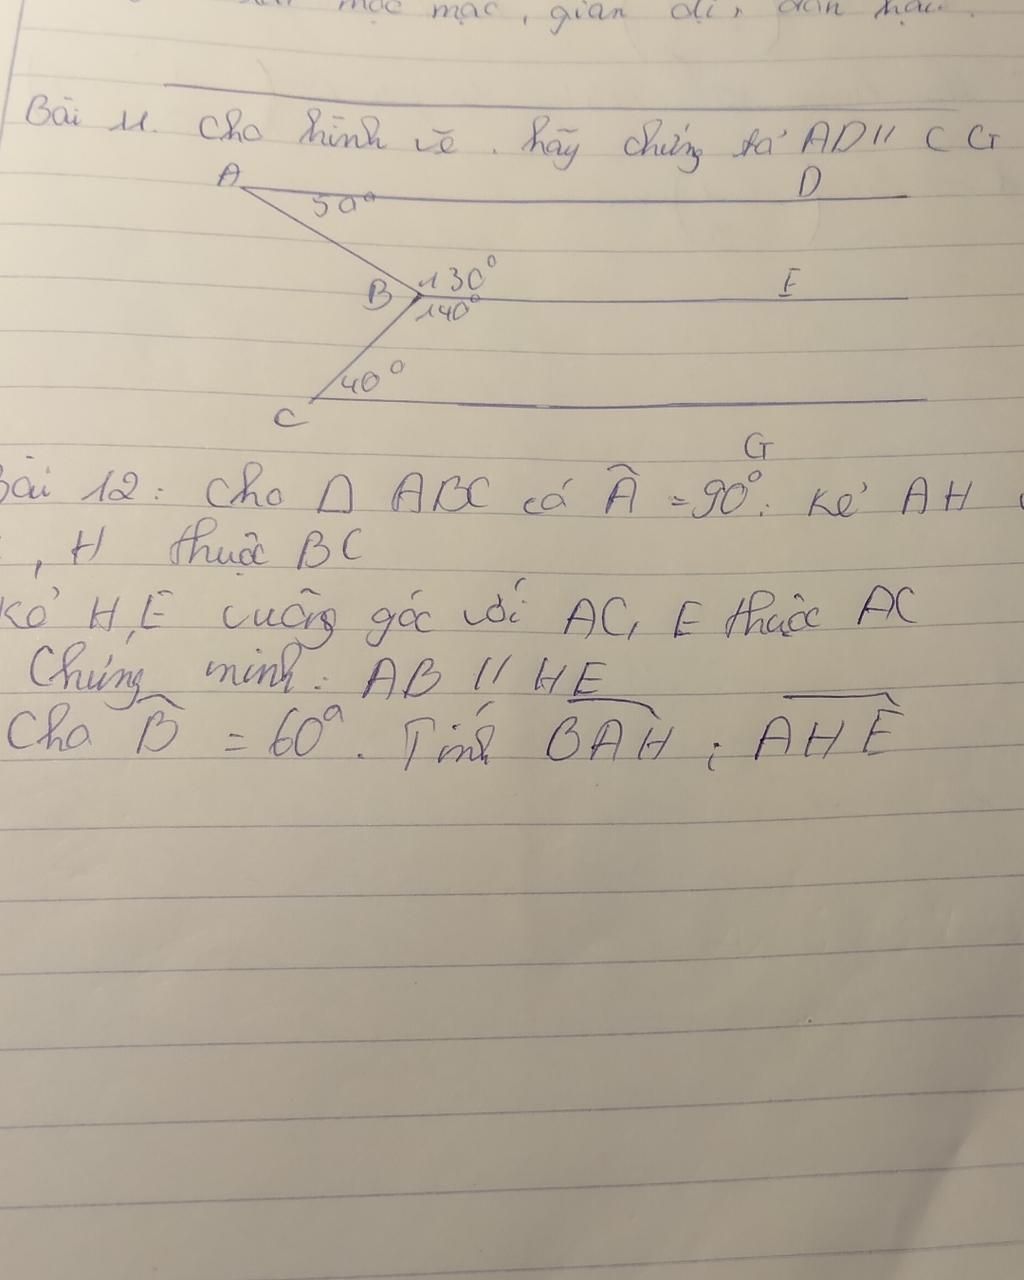 mộc mạc, gian dị,
Bài 11. Cho hình vẽ. hãy chứng tỏ AD // CG
A D
50°
B 130° E
140°
40°
C
G
Bài 12: Cho Δ ABC có Â = 90°. Kẻ AH
, H thuộc BC
Kẻ HE vuông góc với AC, E thuộc AC
Chứng minh: AB // HE
Cho B̂ = 60°. Tính BAH ; AHE